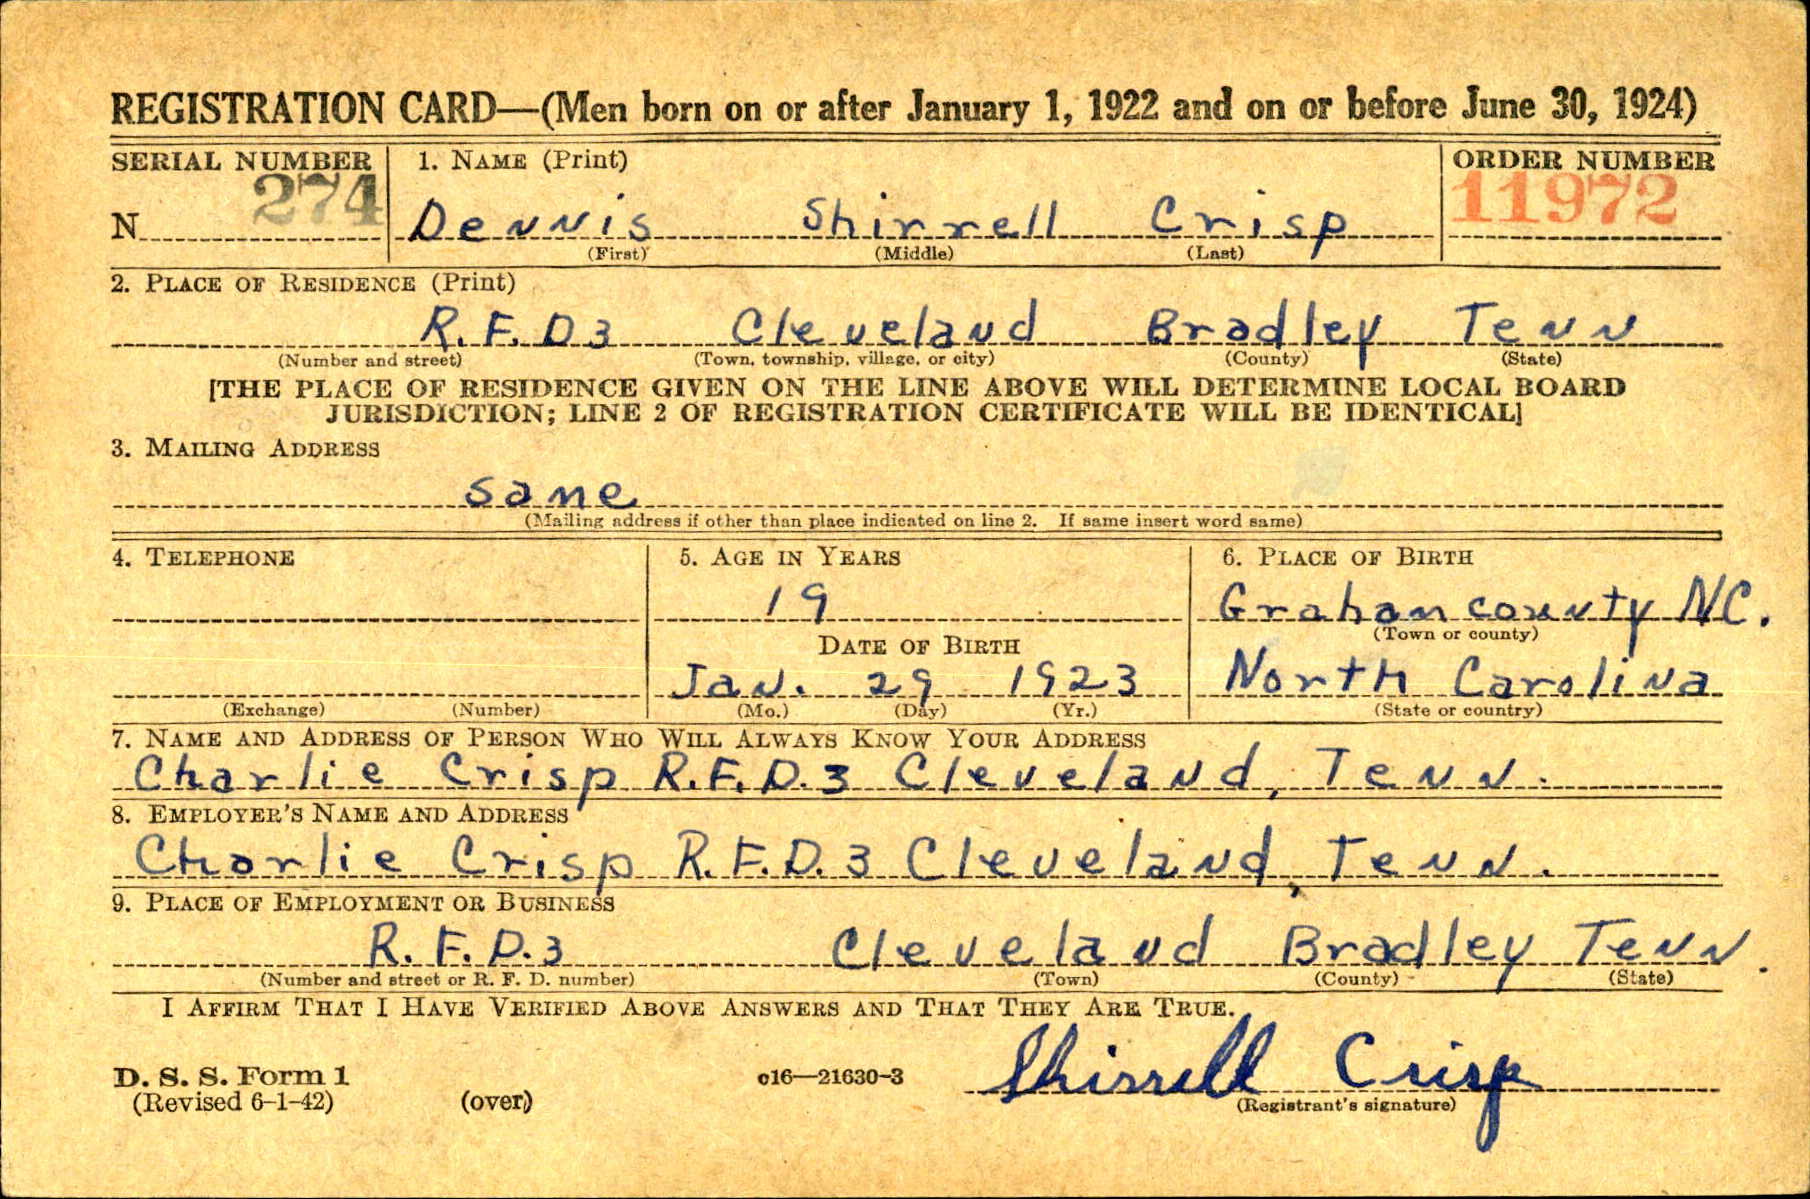 REGISTRATION CARD—(Men born on or after January 1, 1922 and on or before June 30, 1924)
SERIAL NUMBER 1. NAME (Print) ORDER NUMBER
N 274 Dennis Shirrell Crisp 11972
(First) (Middle) (Last)
2. PLACE OF RESIDENCE (Print)
R.F.D 3 Cleveland Bradley Tenn
(Number and street) (Town, township, village, or city) (County) (State)
[THE PLACE OF RESIDENCE GIVEN ON THE LINE ABOVE WILL DETERMINE LOCAL BOARD
JURISDICTION; LINE 2 OF REGISTRATION CERTIFICATE WILL BE IDENTICAL]
3. MAILING ADDRESS
same
(Mailing address if other than place indicated on line 2. If same insert word same)
4. TELEPHONE 5. AGE IN YEARS 6. PLACE OF BIRTH
19 Graham county NC.
(Town or county)
DATE OF BIRTH
Jan. 29 1923 North Carolina
(Exchange) (Number) (Mo.) (Day) (Yr.) (State or country)
7. NAME AND ADDRESS OF PERSON WHO WILL ALWAYS KNOW YOUR ADDRESS
Charlie Crisp R.F.D.3 Cleveland, Tenn.
8. EMPLOYER'S NAME AND ADDRESS
Charlie Crisp R.F.D.3 Cleveland, Tenn.
9. PLACE OF EMPLOYMENT OR BUSINESS
R.F.D.3 Cleveland Bradley Tenn.
(Number and street or R. F. D. number) (Town) (County) (State)
I AFFIRM THAT I HAVE VERIFIED ABOVE ANSWERS AND THAT THEY ARE TRUE.
D. S. S. Form 1 c16—21630-3 Shirrell Crisp
(Revised 6-1-42) (over) (Registrant's signature)